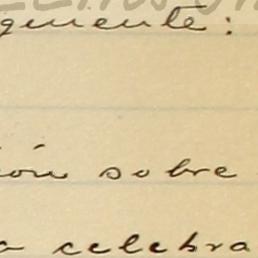 quente:
ión sobre
a celebra